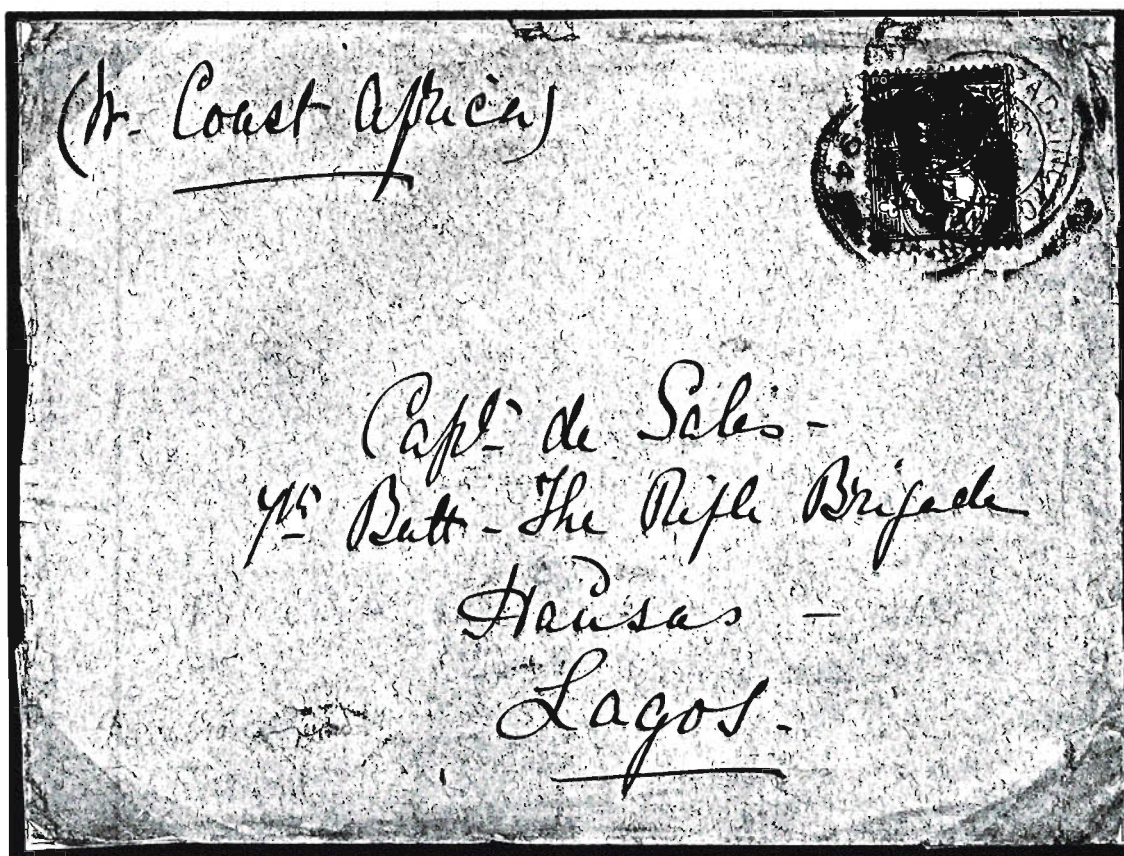 (W. Coast Africa)
PADDINGTON
94
Capt. de Salis -
7th Batt - The Rifle Brigade
Hausas -
Lagos.